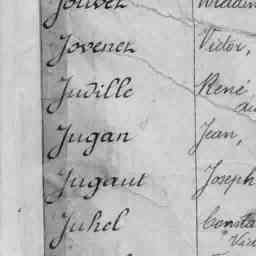 Jovenet Victor,
Juville René
Jugan Jean,
Jugaut Joseph
Juhel Consta